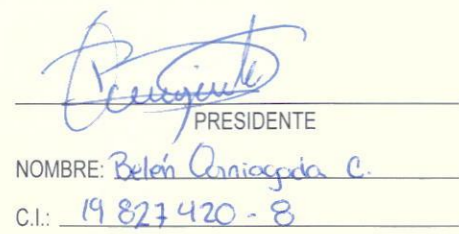 PRESIDENTE
NOMBRE: Belén Arriagada C.
C.I.: 19 827 420 - 8